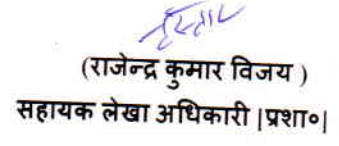 (राजेन्द्र कुमार विजय )
सहायक लेखा अधिकारी |प्रशा०|